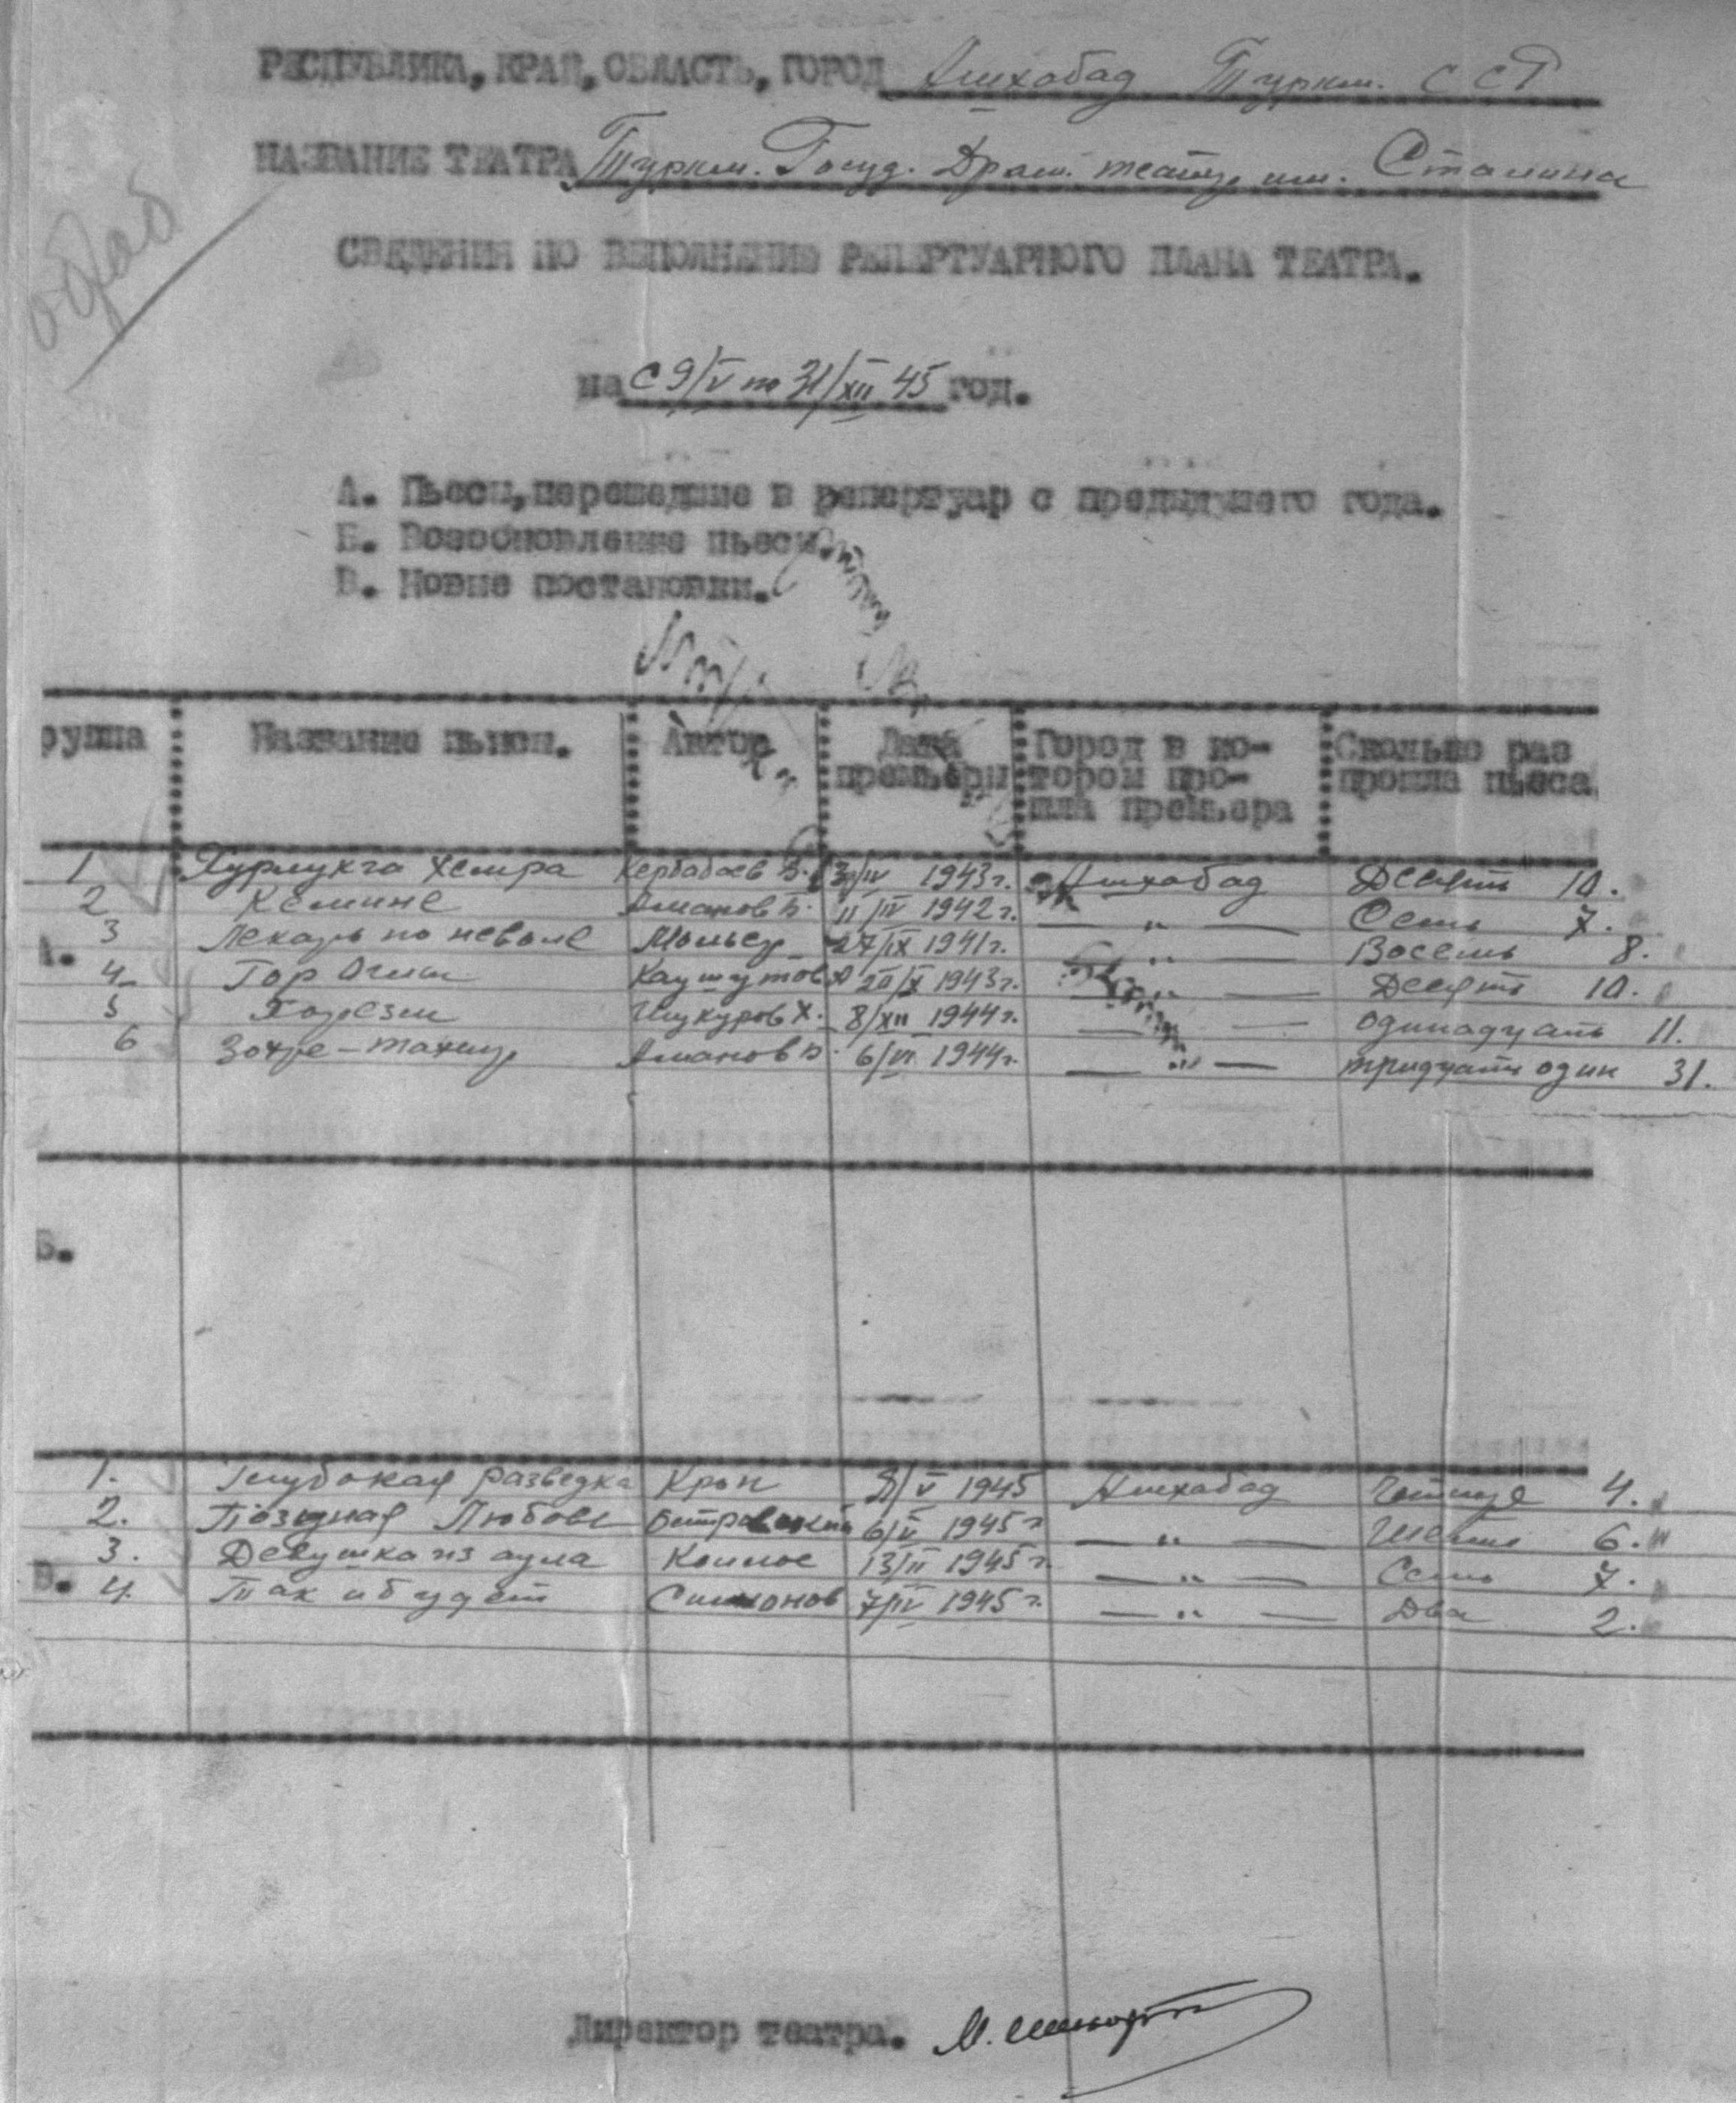 РЕСПУБЛИКА, КРАЙ, ОБЛАСТЬ, ГОРОД Ашхабад Туркм. ССР
НАЗВАНИЕ ТЕАТРА Туркм. Госуд. Драм. театр им. Сталина
СВЕДЕНИЯ ПО ВЫПОЛНЕНИЮ РЕПЕРТУАРНОГО ПЛАНА ТЕАТРА.
на с 9/V по 31/XII 45 год.
А. Пьесы, перешедшие в репертуар с предыдущего года.
Б. Возобновление пьесы.
В. Новые постановки.
руппа Название пьесы. Автор Дата премьеры Город в ко-тором про-шла премьера Сколько раз прошла пьеса
1 Хурлукга Хемра Кербабаев Б. 3/IV 1943г. Ашхабад Десять 10.
2 Кемине Аманов Б. 11/IV 1942г. — " — Семь 7.
А. 3 Лекарь по неволе Мольер 27/IX 1941г. — " — Восемь 8.
4 Гор Оглы Каушутов 20/X 1943г. — " — Десять 10.
5 Шукуров Х. 8/XII 1944г. — " — одинадцать 11.
6 Зохре-Тахир Аманов Б. 6/VI 1944г. — " — тридцать один 31.
Б.
1. Глубокая разведка Крон 8/V 1945 Ашхабад Четыре 4.
2. Поздняя Любовь Островский 6/V 1945г — " — Шесть 6.
3. Девушка из аула 13/II 1945г. — " — Семь 7.
В. 4. Так и будет Симонов 7/IV 1945г. — " — Два 2.
Директор театра.
обраб